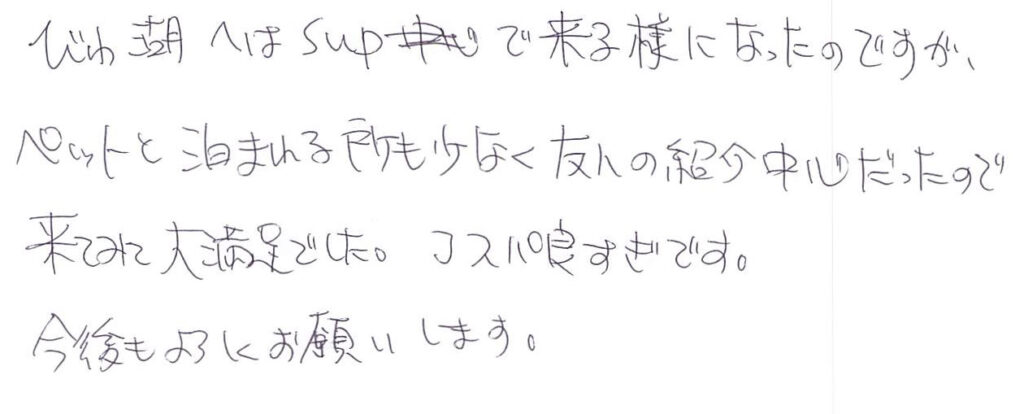 びわ湖へはSupで来る様になったのですが、
ペットと泊まれる所も少なく友人の紹介中心だったので
来てみて大満足でした。コスパ良すぎです。
今後もよろしくお願いします。